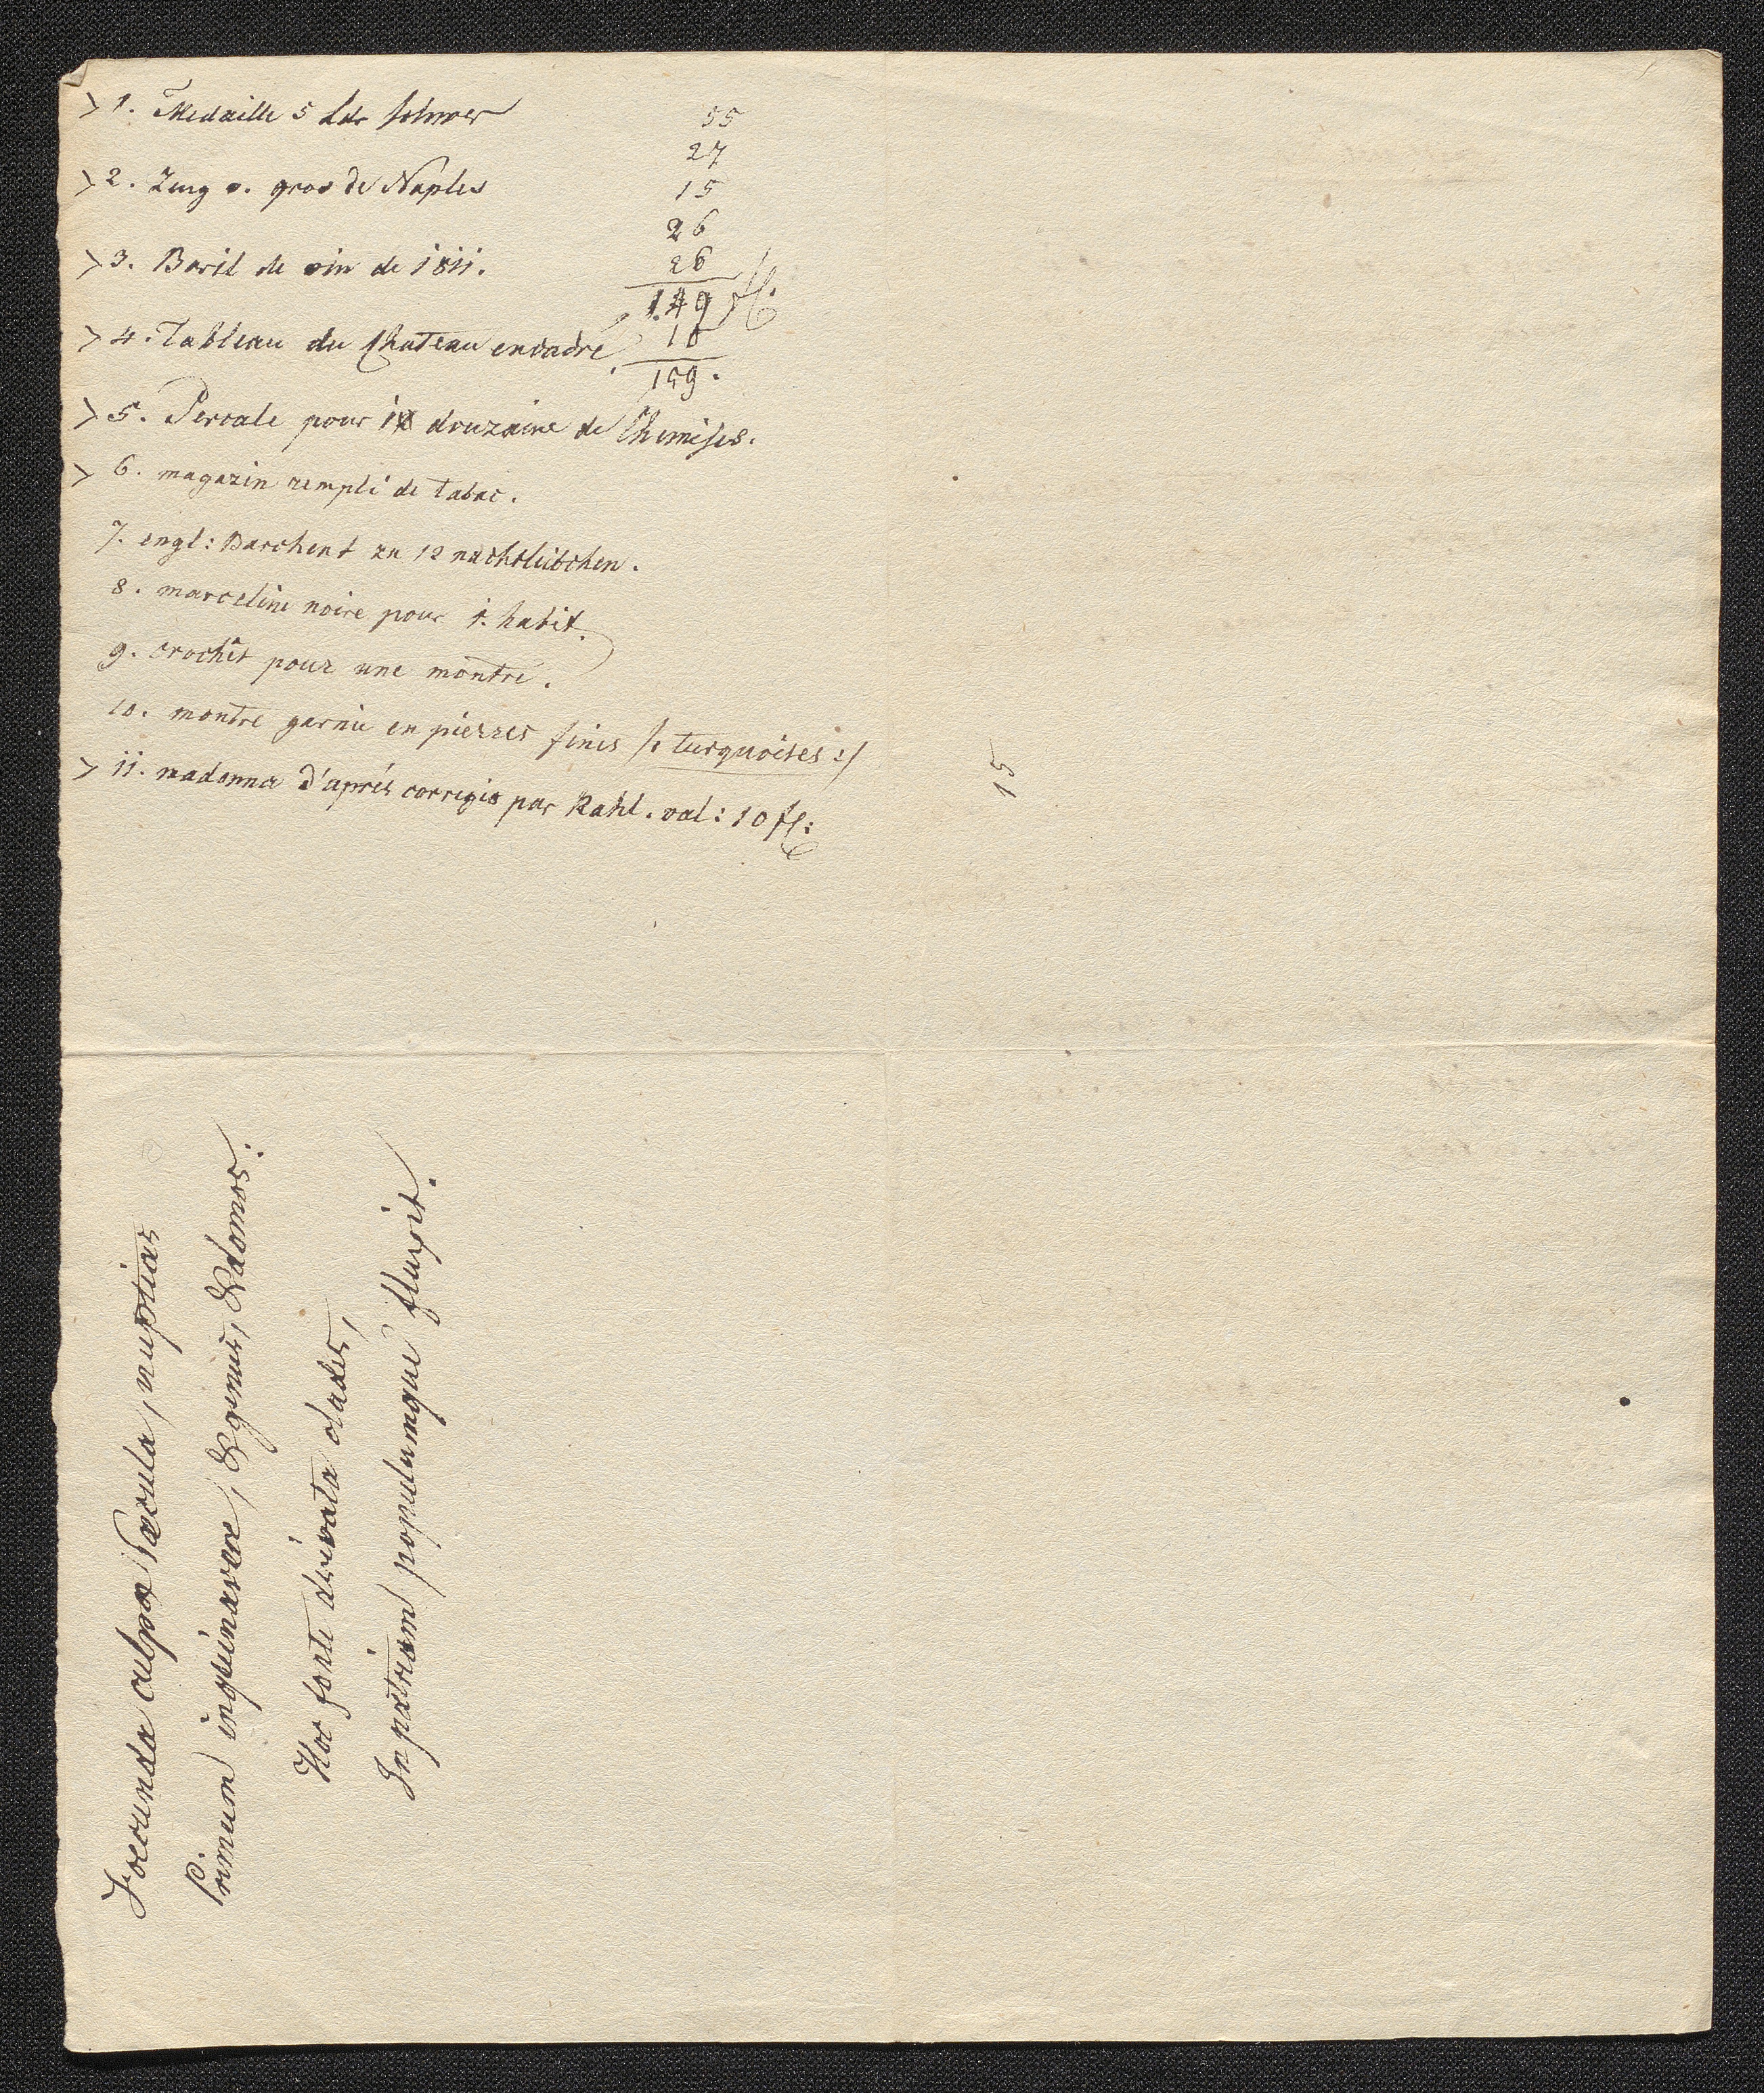 > 1. Medaille 5 Ldr schwer
> 2. Zeug v. gros de Naples
> 3. Baril de vin de 1811.
> 4. Tableau du Chateau encadré
> 5. Percale pour 1 douzaine de Chemises.
> 6. magazin rempli de tabac.
7. engl: Barchent zu 12 nachtleibchen.
8. marceline noire pour 1. habit.
9. crochet pour une montre.
10. montre garnie en pierres fines /: turquoises :/
> 11. madonna d'aprés corregio par Rahl. val: 10 fl:
55
27
15
26
26
149 fl.
10
159.
15
Foecunda culpae saecula, nuptias
Primum inquinavere, & genus, & domos:
Hoc fonte derivata clades,
In patriam populumque fluxit.